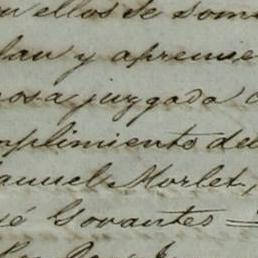 en ellos de some
lan y apremie
cosa juzgada
mplimiento del
anuel Morlet,
sé Govantes =